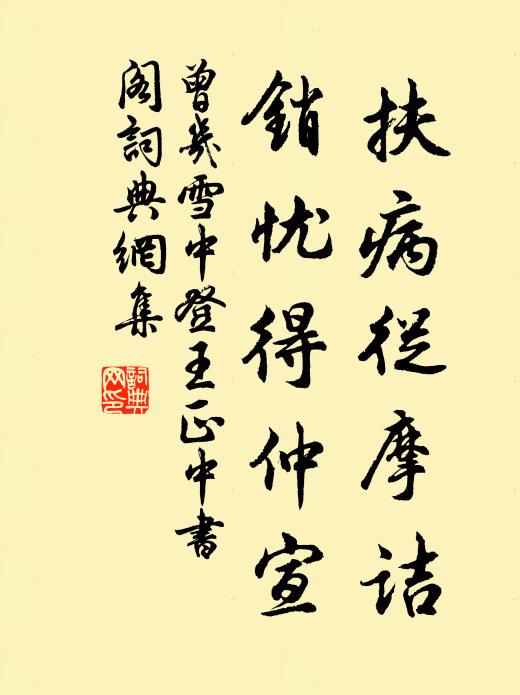 扶病從摩詰
銷忧得仲宣
曾幾雪中登王正中書
閣詞典網集
詞典
网印